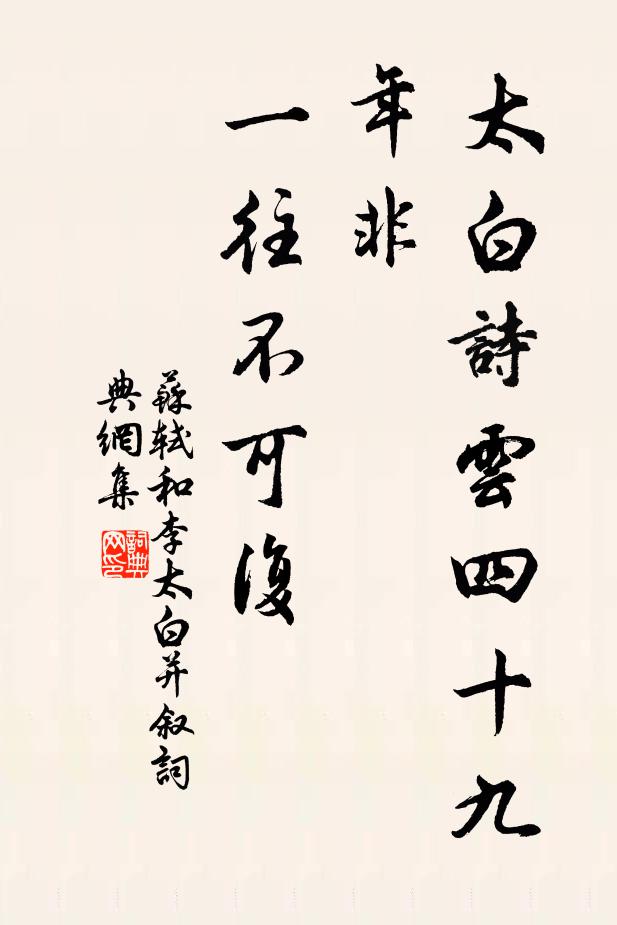 太白詩雲四十九
年非
一往不可復
蘇軾和李太白并叙詞
典網集
詞典
网印